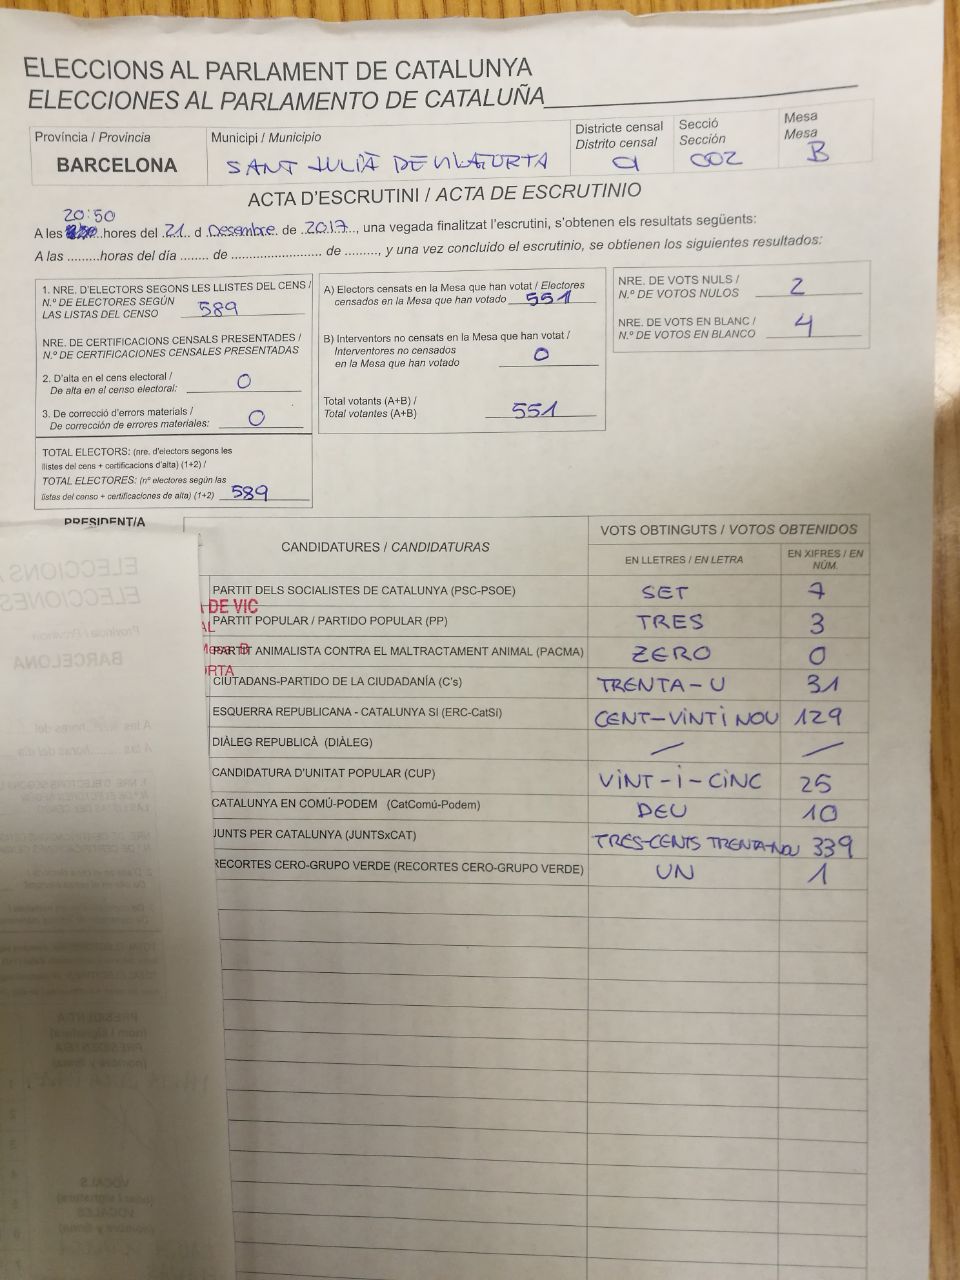 ELECCIONS AL PARLAMENT DE CATALUNYA
ELECCIONES AL PARLAMENTO DE CATALUÑA
Província / Provincia
BARCELONA
Municipi / Municipio
SANT JULIÀ DE VILATORTA
Districte censal
Distrito censal
Secció
Sección
002
Mesa
Mesa
B
ACTA D'ESCRUTINI / ACTA DE ESCRUTINIO
20:50
A les ........hores del 21 d Desembre de 2017, una vegada finalitzat l'escrutini, s'obtenen els resultats següents:
A las .........horas del día ........ de ......................... de ........., y una vez concluido el escrutinio, se obtienen los siguientes resultados:
1. NRE. D'ELECTORS SEGONS LES LLISTES DEL CENS /
N.º DE ELECTORES SEGÚN
LAS LISTAS DEL CENSO 589
NRE. DE CERTIFICACIONS CENSALS PRESENTADES /
N.º DE CERTIFICACIONES CENSALES PRESENTADAS
2. D'alta en el cens electoral /
De alta en el censo electoral: 0
3. De correcció d'errors materials /
De corrección de errores materiales: 0
TOTAL ELECTORS: (nre. d'electors segons les
llistes del cens + certificacions d'alta) (1+2) /
TOTAL ELECTORES: (nº electores según las
listas del censo + certificaciones de alta) (1+2) 589
A) Electors censats en la Mesa que han votat / Electores
censados en la Mesa que han votado 551
B) Interventors no censats en la Mesa que han votat /
Interventores no censados
en la Mesa que han votado 0
Total votants (A+B) /
Total votantes (A+B) 551
NRE. DE VOTS NULS /
N.º DE VOTOS NULOS 2
NRE. DE VOTS EN BLANC /
N.º DE VOTOS EN BLANCO 4
PRESIDENT/A
CANDIDATURES / CANDIDATURAS
VOTS OBTINGUTS / VOTOS OBTENIDOS
EN LLETRES / EN LETRA
EN XIFRES / EN
NÚM.
PARTIT DELS SOCIALISTES DE CATALUNYA (PSC-PSOE) SET 7
DE VIC
PARTIT POPULAR / PARTIDO POPULAR (PP) TRES 3
PARTIT ANIMALISTA CONTRA EL MALTRACTAMENT ANIMAL (PACMA) ZERO 0
CIUTADANS-PARTIDO DE LA CIUDADANÍA (C's) TRENTA-U 31
ESQUERRA REPUBLICANA - CATALUNYA SI (ERC-CatSí) CENT-VINT I NOU 129
DIÀLEG REPUBLICÀ (DIÀLEG) — —
CANDIDATURA D'UNITAT POPULAR (CUP) VINT-I-CINC 25
CATALUNYA EN COMÚ-PODEM (CatComú-Podem) DEU 10
JUNTS PER CATALUNYA (JUNTSxCAT) TRES-CENTS TRENTA-NOU 339
RECORTES CERO-GRUPO VERDE (RECORTES CERO-GRUPO VERDE) UN 1